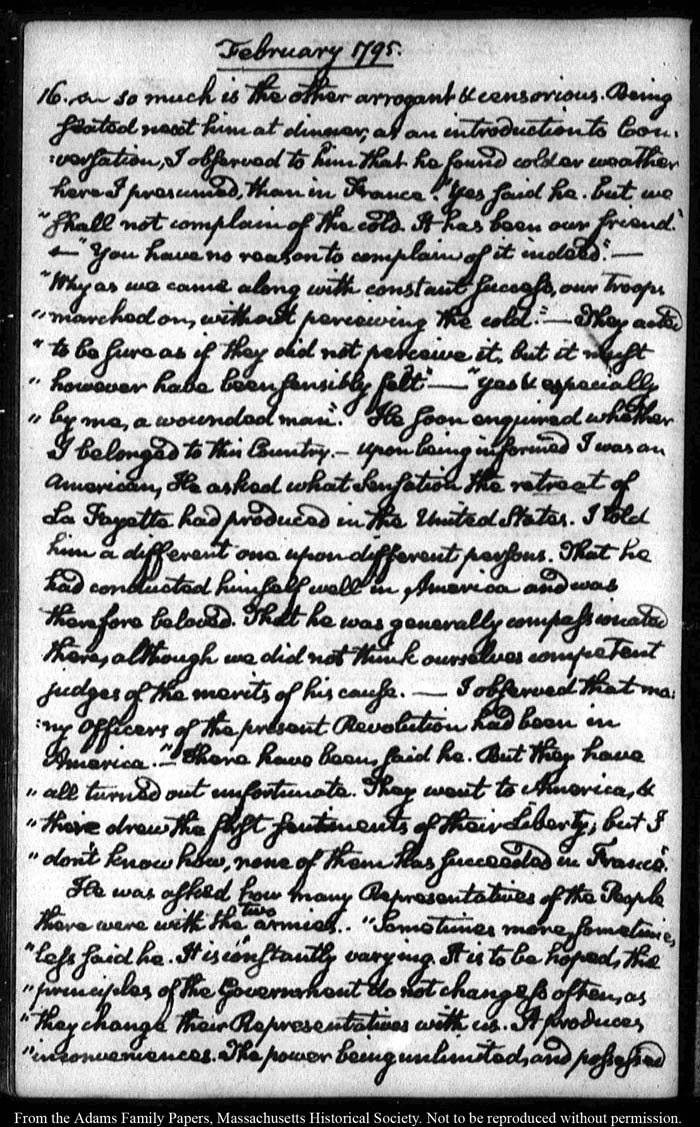 February 1795.
16. so much is the other arrogant & censorious. Being
seated next him at dinner, as an introduction to Con-
:versation, I observed to him that he found colder weather
here I presumed, than in France. "Yes said he. but we
"shall not complain of the cold. It has been our friend."
— "You have no reason to complain of it indeed". —
"Why as we came along with constant success, our Troops
"marched on, without perceiving the cold." — They acted
"to be sure as if they did not perceive it, but it must
"however have been sensibly felt" — "yes & especially
"by me, a wounded man". He soon enquired whether
I belonged to this Country. — upon being informed I was an
American, He asked what sensation the retreat of
La Fayette had produced in the United States. I told
him a different one upon different persons. That he
had conducted himself well in America and was
therefore beloved. That he was generally compassionated
there, although we did not think ourselves competent
judges of the merits of his cause. — I observed that ma:
:ny Officers of the present Revolution had been in
America. — "There have been, said he. But they have
"all turned out unfortunate. They went to America, &
"there drew the first sentiments of their Liberty; but I
"don't know how, none of them has succeeded in France".
He was asked how many Representatives of the People
there were with the two armies. "Sometimes more, sometimes
"less said he. It is constantly varying. It is to be hoped, the
"principles of the Government do not change so often, as
"they change their Representatives with us. It produces
"inconveniences. The power being unlimited, and possessed
From the Adams Family Papers, Massachusetts Historical Society. Not to be reproduced without permission.